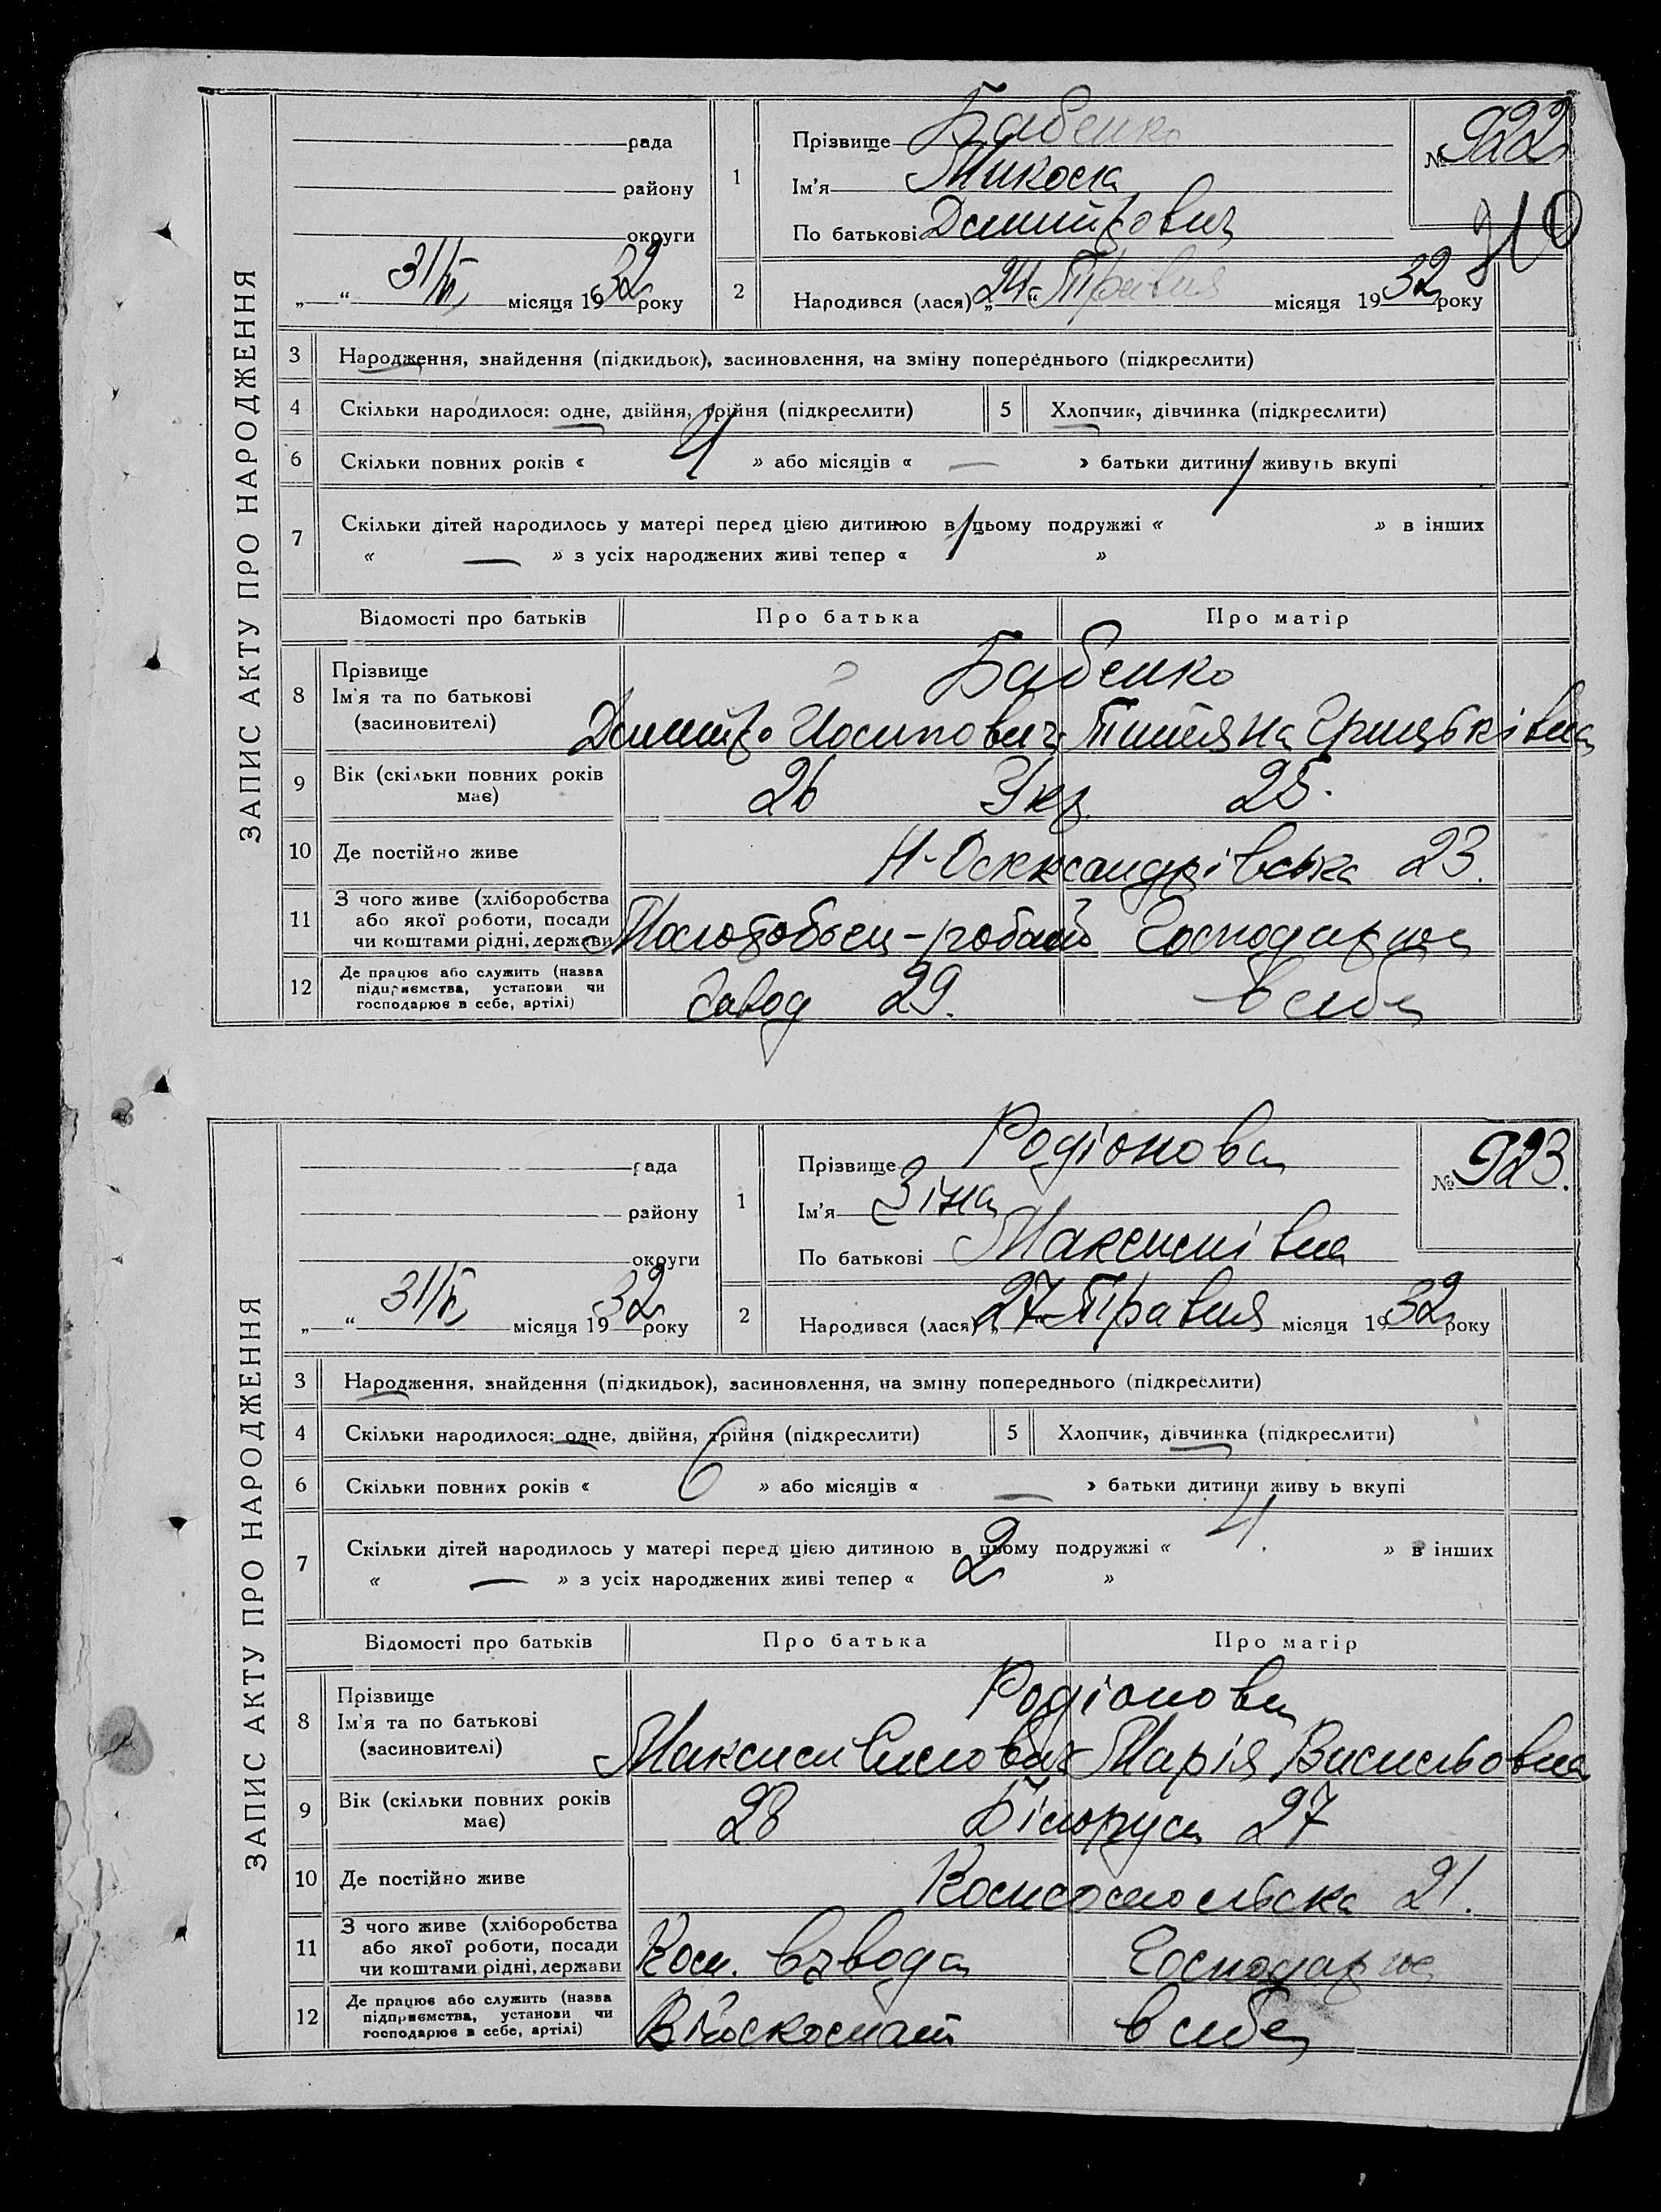 ЗАПИС АКТУ ПРО НАРОДЖЕННЯ
рада
району
округи
„ “ 31/V місяця 1932 року
1
Прізвище Бабенко
Ім'я Микола
По батькові Дмитрович
№ 922
2
Народився (лася) „24“ Травня місяця 1932 року
3 Народження, знайдення (підкидьок), засиновлення, на зміну попереднього (підкреслити)
4 Скільки народилося: одне, двійня, трійня (підкреслити)
5 Хлопчик, дівчинка (підкреслити)
6 Скільки повних років « 4 » або місяців « — » батьки дитини живуть вкупі
7 Скільки дітей народилось у матері перед цією дитиною в цьому подружжі « 1 » в інших
« — » з усіх народжених живі тепер « 1 »
Відомості про батьків Про батька Про матір
8 Прізвище
Ім'я та по батькові
(засиновителі)
Бабенко
Дмитро Йосипович Титяна Грицьківна
9 Вік (скільки повних років
має)
26 Укр. 25.
10 Де постійно живе Н-Олександрівська 23.
11 З чого живе (хліборобства
або якої роботи, посади
чи коштами рідні, держави
Молотобоец-робітн Господарює
12 Де працює або служить (назва
підприємства, установи чи
господарює в себе, артілі)
Завод 29. в себе
ЗАПИС АКТУ ПРО НАРОДЖЕННЯ
рада
району
округи
„ “ 31/V місяця 1932 року
1
Прізвище Родіонова
Ім'я Зіна
По батькові Максимівна
№ 923.
2
Народився (лася) „27 Травня місяця 1932 року
3 Народження, знайдення (підкидьок), засиновлення, на зміну попереднього (підкреслити)
4 Скільки народилося: одне, двійня, трійня (підкреслити)
5 Хлопчик, дівчинка (підкреслити)
6 Скільки повних років « 6 » або місяців « — » батьки дитини живу ь вкупі
7 Скільки дітей народилось у матері перед цією дитиною в цьому подружжі « 4. » в інших
« — » з усіх народжених живі тепер « 2 »
Відомості про батьків Про батька Про матір
8 Прізвище
Ім'я та по батькові
(засиновителі)
Родіонови
Максим Марія Васильовна
9 Вік (скільки повних років
має)
28 Білоруси 27
10 Де постійно живе Комсомольска 21.
11 З чого живе (хліборобства
або якої роботи, посади
чи коштами рідні, держави
Ком. взвода Господарює
12 Де працює або служить (назва
підприємства, установи чи
господарює в себе, артілі)
Військомат в себе